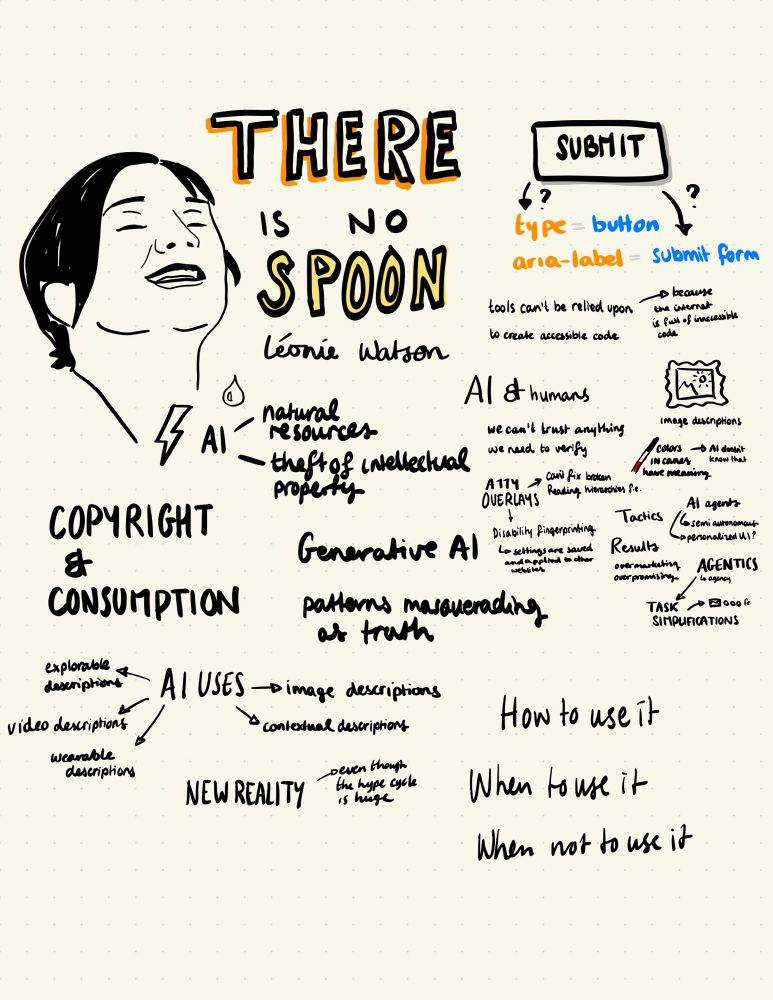 THERE
IS NO
SPOON
Léonie Watson
SUBMIT
?
?
type = button
aria-label = submit form
tools can't be relied upon
to create accessible code
because
the internet
is full of inaccessible
code
AI
natural
resources
theft of intellectual
property
AI & humans
we can't trust anything
we need to verify
image descriptions
colors
in canes
have meaning
AI doesn't
know that
A11Y
OVERLAYS
Can't fix broken
Reading hierarchies f.e.
Disability fingerprinting
settings are saved
and applied to other
websites
Tactics
AI agents
semi autonomous
personalized UI?
Results
overmarketing
overpromising
AGENTICS
agency
TASK
SIMPLIFICATIONS
COPYRIGHT
&
CONSUMPTION
Generative AI
patterns masquerading
as truth
AI USES
explorable
descriptions
video descriptions
wearable
descriptions
image descriptions
contextual descriptions
NEW REALITY
even though
the hype cycle
is huge
How to use it
When to use it
When not to use it